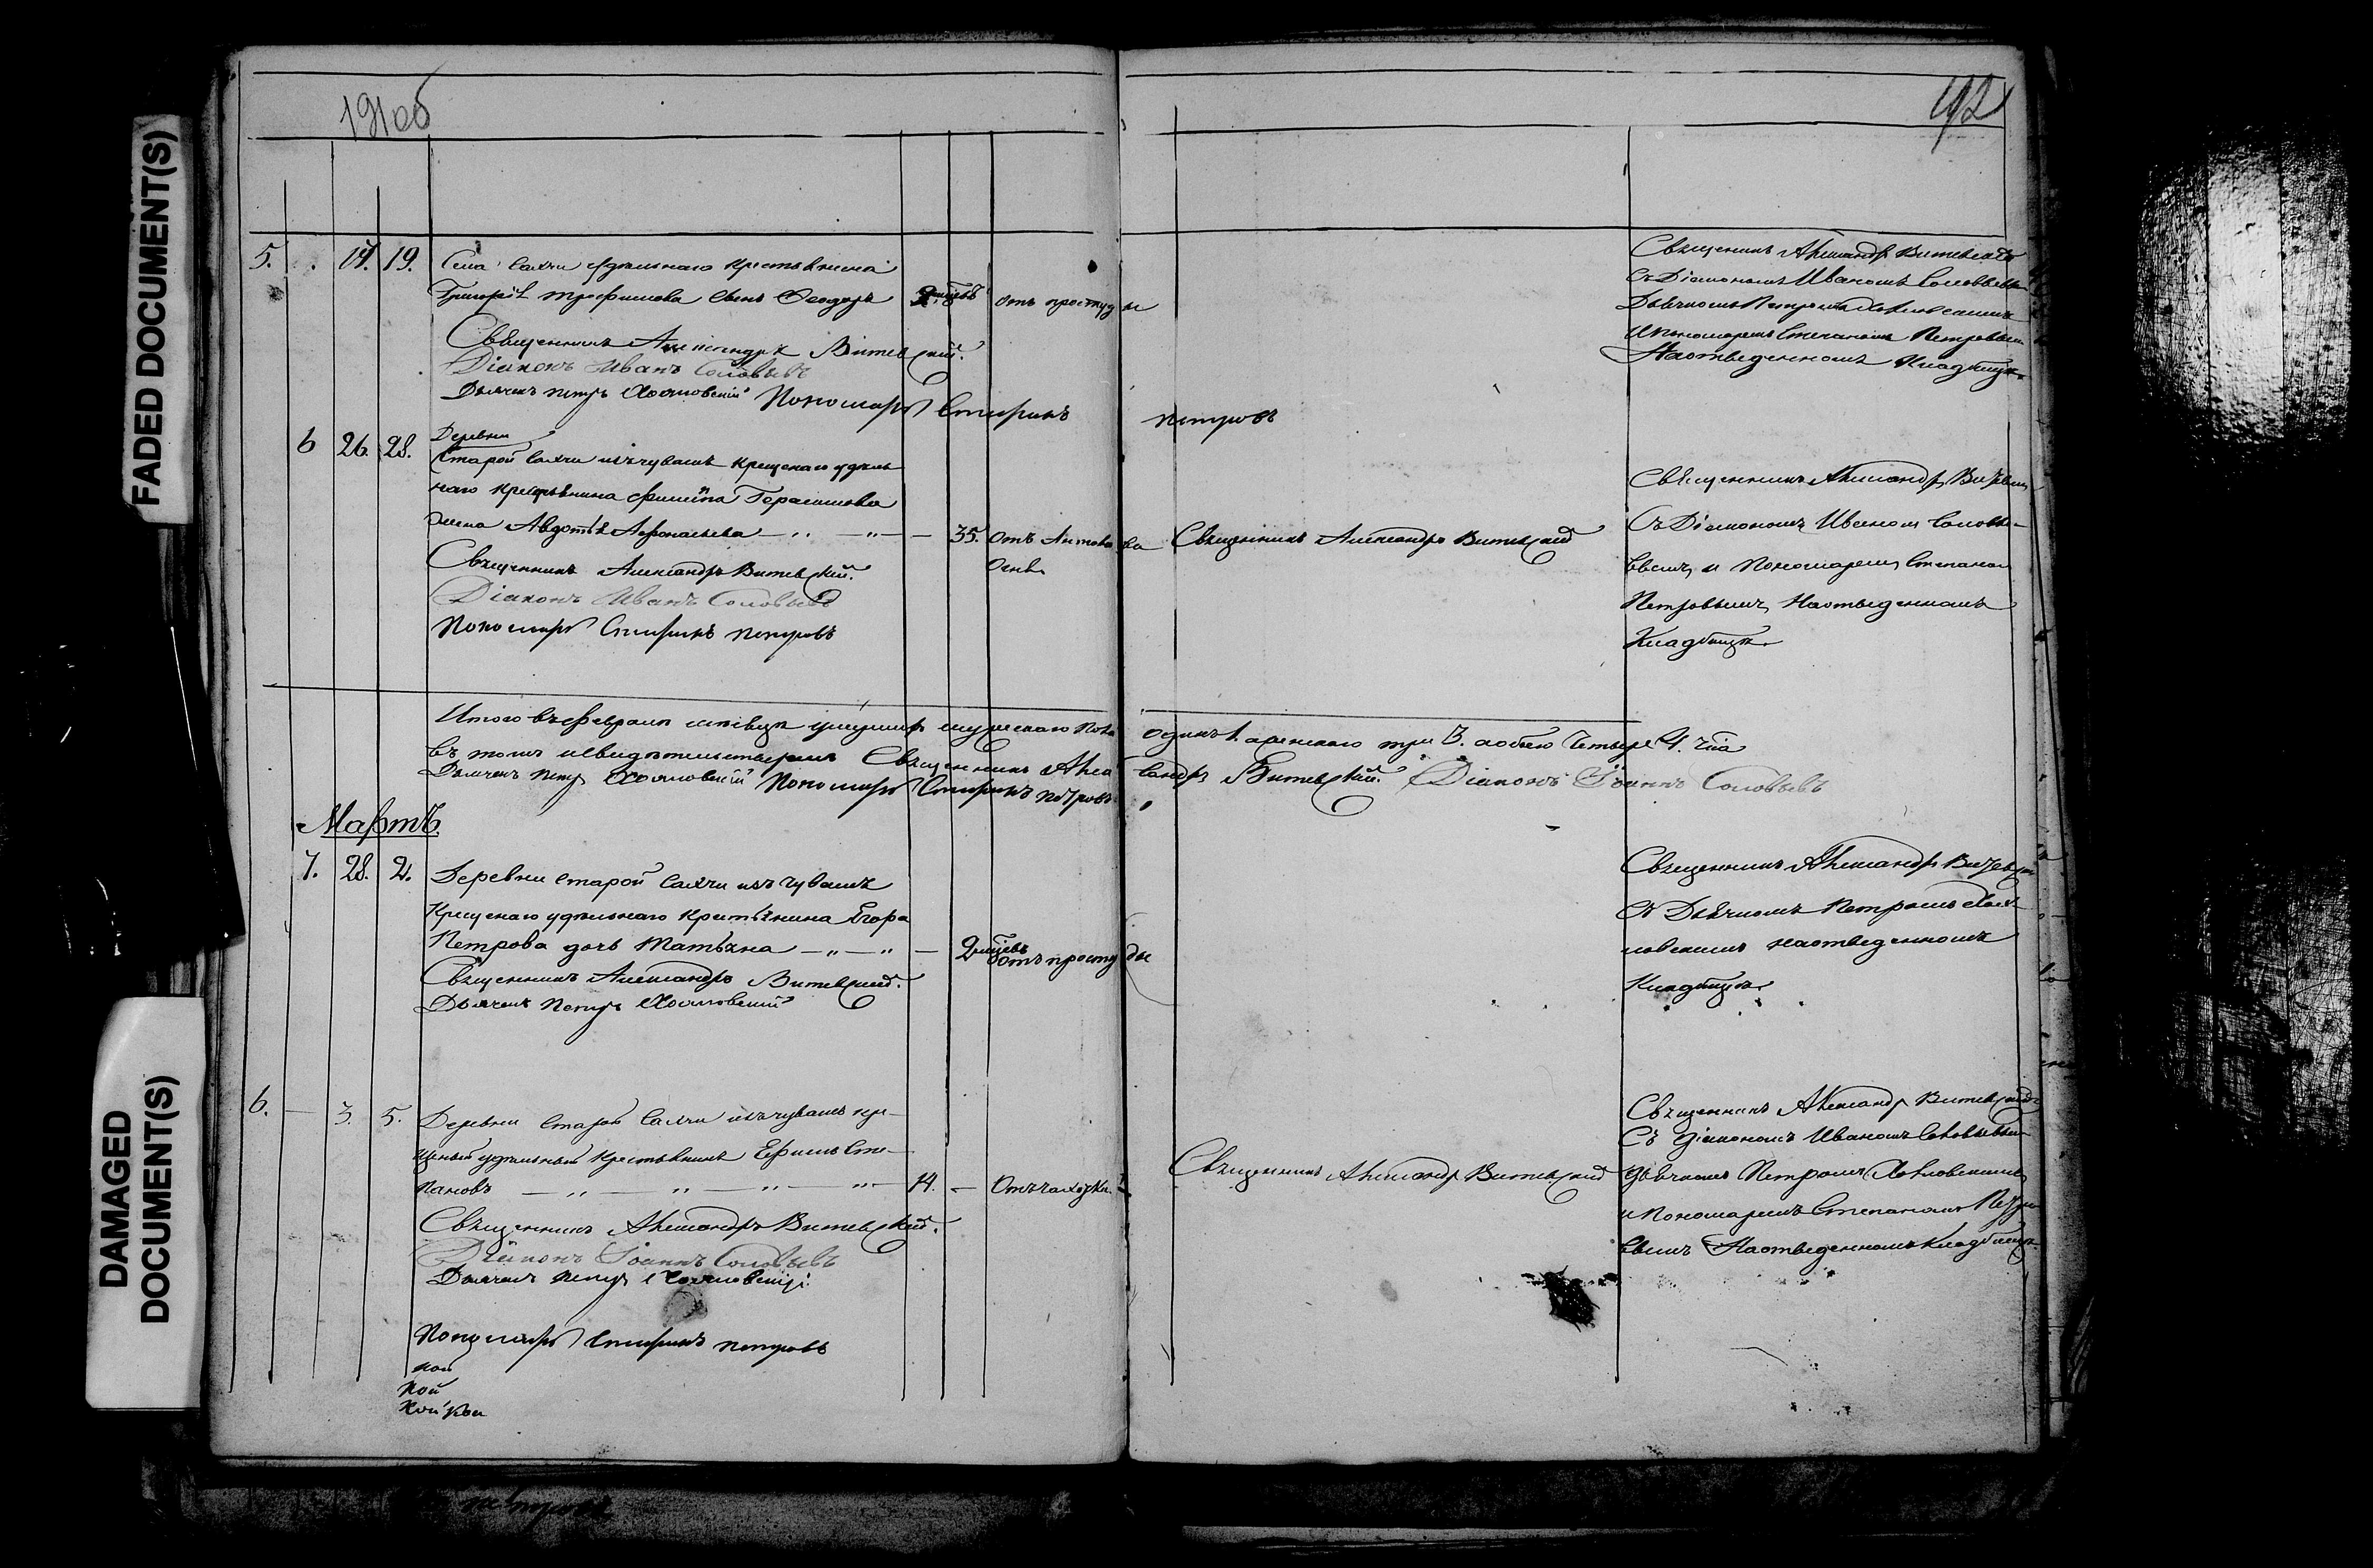 FADED DOCUMENT(S)
DAMAGED
DOCUMENT(S)
191об
192
5. 17. 19. Села Салчи удѣльнаго крестьянина
Григорія Трофимова сынъ Ѳеодоръ отъ простуды
Священникъ Александръ Витевскій.
Діаконъ Иванъ Соловьевъ
Дьячекъ Петръ Пономарь Стефанъ Петровъ
Священникъ Александръ Витевскій
съ Діакономъ Иваномъ Соловьевымъ
Дьячкомъ Петромъ
и Пономаремъ Степаномъ Петровымъ
На отведенномъ кладбищѣ.
6 26. 28. Деревни
Старой Салчи изъ чувашъ крещенаго удѣль
наго крестьянина Филипа Герасимова
жена Авдотья Афонасьева 35. отъ Антонова
огня.
Священникъ Александръ Витевскій.
Діаконъ Иванъ Соловьевъ
Пономарь Стефанъ Петровъ
Священникъ Александръ Витевскій
Священникъ Александръ Витевскій
съ Діакономъ Иваномъ Соловье-
вымъ и Пономаремъ Степаномъ
Петровымъ На отведенномъ
Кладбищѣ.
Итого въ Февралѣ мѣсяцѣ умерших мужескаго пола одинъ 1. а женскаго три 3. а обоего четыре 4. ч̃ла
въ томъ и свидѣтельствуемъ Священникъ Александръ Витевскій. Діаконъ Іоаннъ Соловьевъ
Дьячекъ Петръ Пономарь Стефанъ Петровъ
Мартъ.
7. 28. 2. Деревни Старой Салчи изъ чувашъ
крещенаго удѣльнаго крестьянина Егора
Петрова дочь Татьяна 2 отъ простуды
Священникъ Александръ Витевскій.
Дьячекъ Петръ
Священникъ Александръ Витевскій
съ Дьячкомъ Петромъ
на отведенномъ
Кладбищѣ.
6. 3. 5. Деревни Старой Салчи изъ чувашъ кре-
щеный удѣльный крестьянинъ Ефимъ Сте-
пановъ 14. Отъ чахотки.
Священникъ Александръ Витевскій.
Діаконъ Іоаннъ Соловьевъ
Дьячекъ Петръ
Пономарь Стефанъ Петровъ
Священникъ Александръ Витевскій
Священникъ Александръ Витевскій
съ діакономъ Иваномъ Соловьевымъ
дьячкомъ Петромъ
и Пономаремъ Степаномъ Петро
вымъ На отведенномъ кладбищѣ.